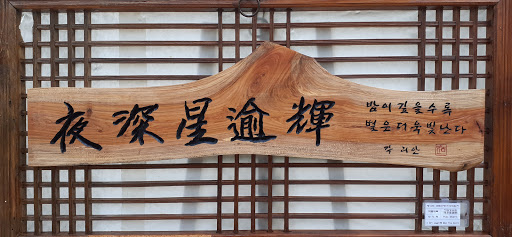 夜深星逾輝
밤이 깊을수록
별은 더욱 빛난다